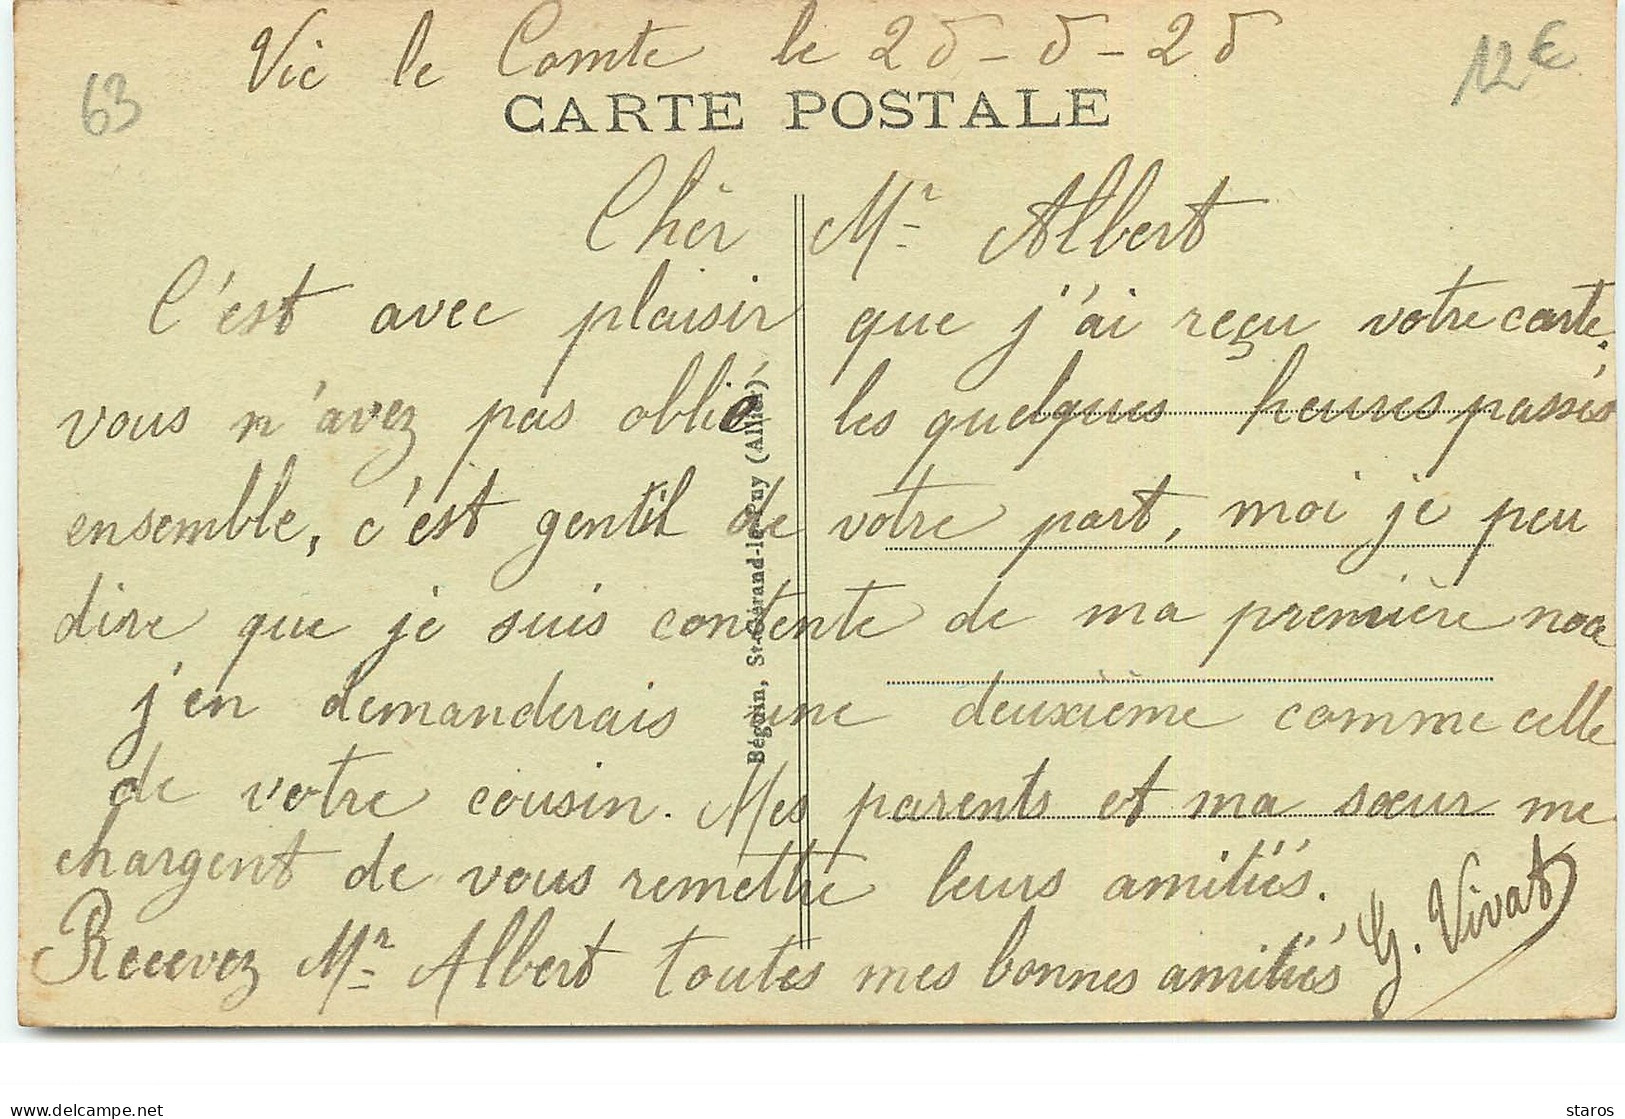 Vic le Comte le 25-5-25
63
12€
CARTE POSTALE
Chèr Mr Albert
C'est avec plaisir que j'ai reçu votre carte.
vous n'avez pas oblié les quelques heures passés
ensemble, c'est gentil de votre part, moi je peu
dire que je suis contente de ma première noce
j'en demanderais une deuxième comme celle
de votre cousin. Mes parents et ma sœur me
chargent de vous remettre leurs amitiés.
Recevez Mr Albert toutes mes bonnes amitiés G. Vivat
Béguin, St-Gérand-le-Puy (Allier)
delcampe.net
staros